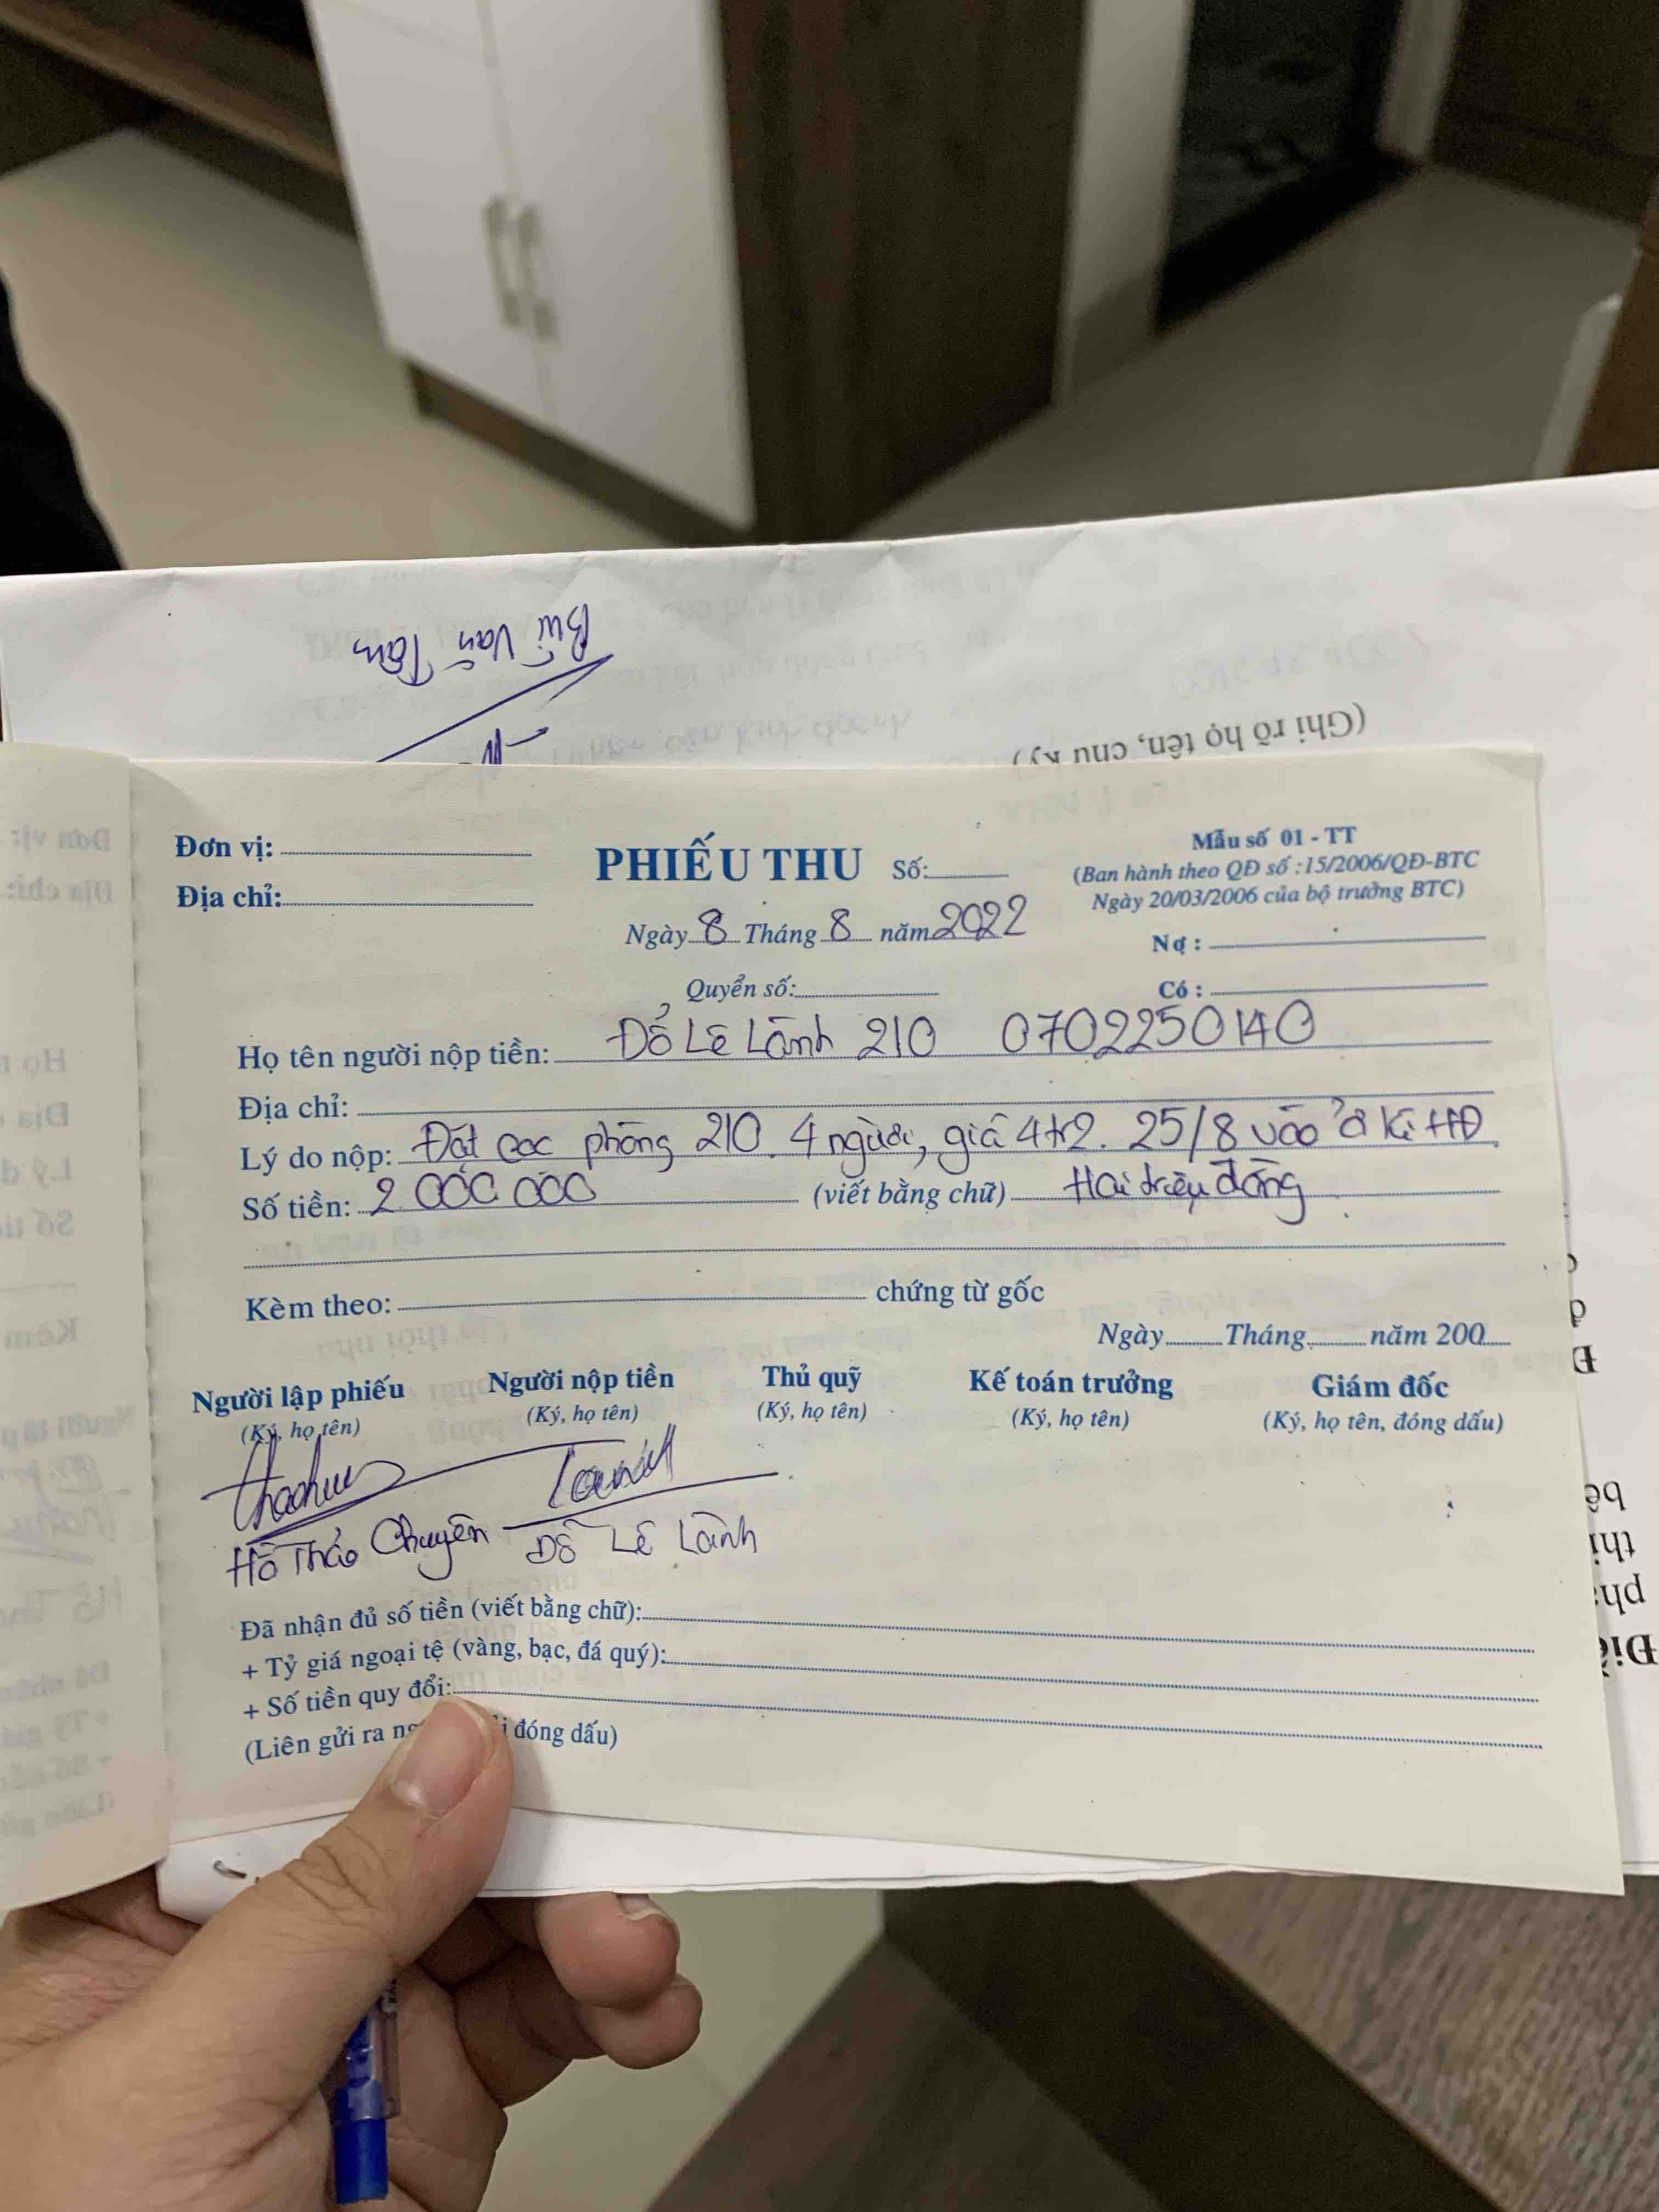 Bùi Văn Tâm
(Ghi rõ họ tên, chữ ký)
Đơn vị:
Địa chỉ:
PHIẾU THU Số:
Mẫu số 01 - TT
(Ban hành theo QĐ số :15/2006/QĐ-BTC
Ngày 20/03/2006 của bộ trưởng BTC)
Ngày 8 Tháng 8 năm 2022
Nợ :
Quyển số:
Có :
Họ tên người nộp tiền: Đỗ Lê Lành 210 0702250140
Địa chỉ:
Lý do nộp: Đặt cọc phòng 210. 4 người, giá 4tr2. 25/8 vào ở kí HĐ
Số tiền: 2 000 000 (viết bằng chữ) Hai triệu đồng
Kèm theo: chứng từ gốc
Ngày Tháng năm 200
Người lập phiếu Người nộp tiền Thủ quỹ Kế toán trưởng Giám đốc
(Ký, họ tên) (Ký, họ tên) (Ký, họ tên) (Ký, họ tên) (Ký, họ tên, đóng dấu)
Hồ Thảo Chuyên Đỗ Lê Lành
Đã nhận đủ số tiền (viết bằng chữ):
+ Tỷ giá ngoại tệ (vàng, bạc, đá quý):
+ Số tiền quy đổi:
(Liên gửi ra đóng dấu)